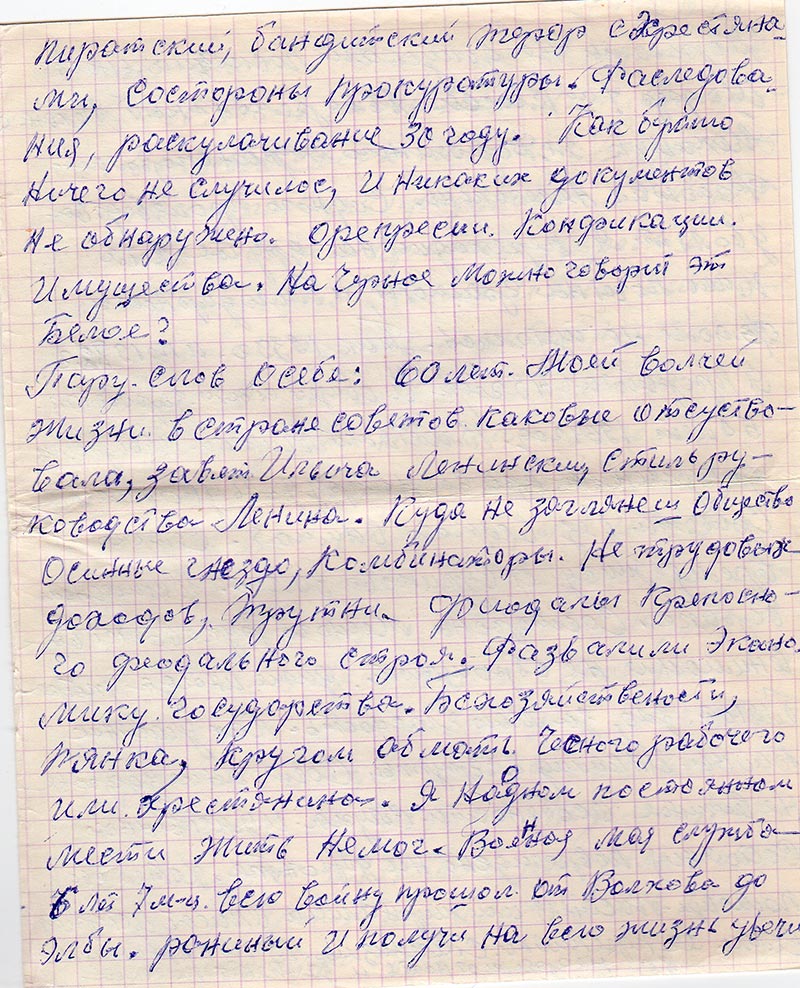 пиратский, бандитский терор с хрестяна-
ми, состороны прокуратуры. Раследова-
ния, раскулачивание 30 году. Как будто
ничего не случилос, и никаких документов
не обнаружено. Орепресии. Конфикации.
Имущества. На Чорное можно говорит эт
Белое?
Пару-слов осебе: 60 лет. Моей волчей
жизни. в стране советов. каковые отсуство-
вала, завет Ильича Ленинским, стиль ру-
ководства Ленина. Куда не заглянеш общество
Осинные гнездо, Комбинаторы. Не трудовых
доходов, Трутни. Фиодалы Крепосно-
го феодального строя. Развалили Эконо-
мику. государства. Бсхозяйствености,
тянка, кругом обмать. Чесного рабочего
или хрестянина. Я наодном постоянном
мести жить немог. Военная моя служба
6 лет 7 м-ц. всю войну прошол от Волхова до
Элбы. раниный и получи на всю жизнь увечи